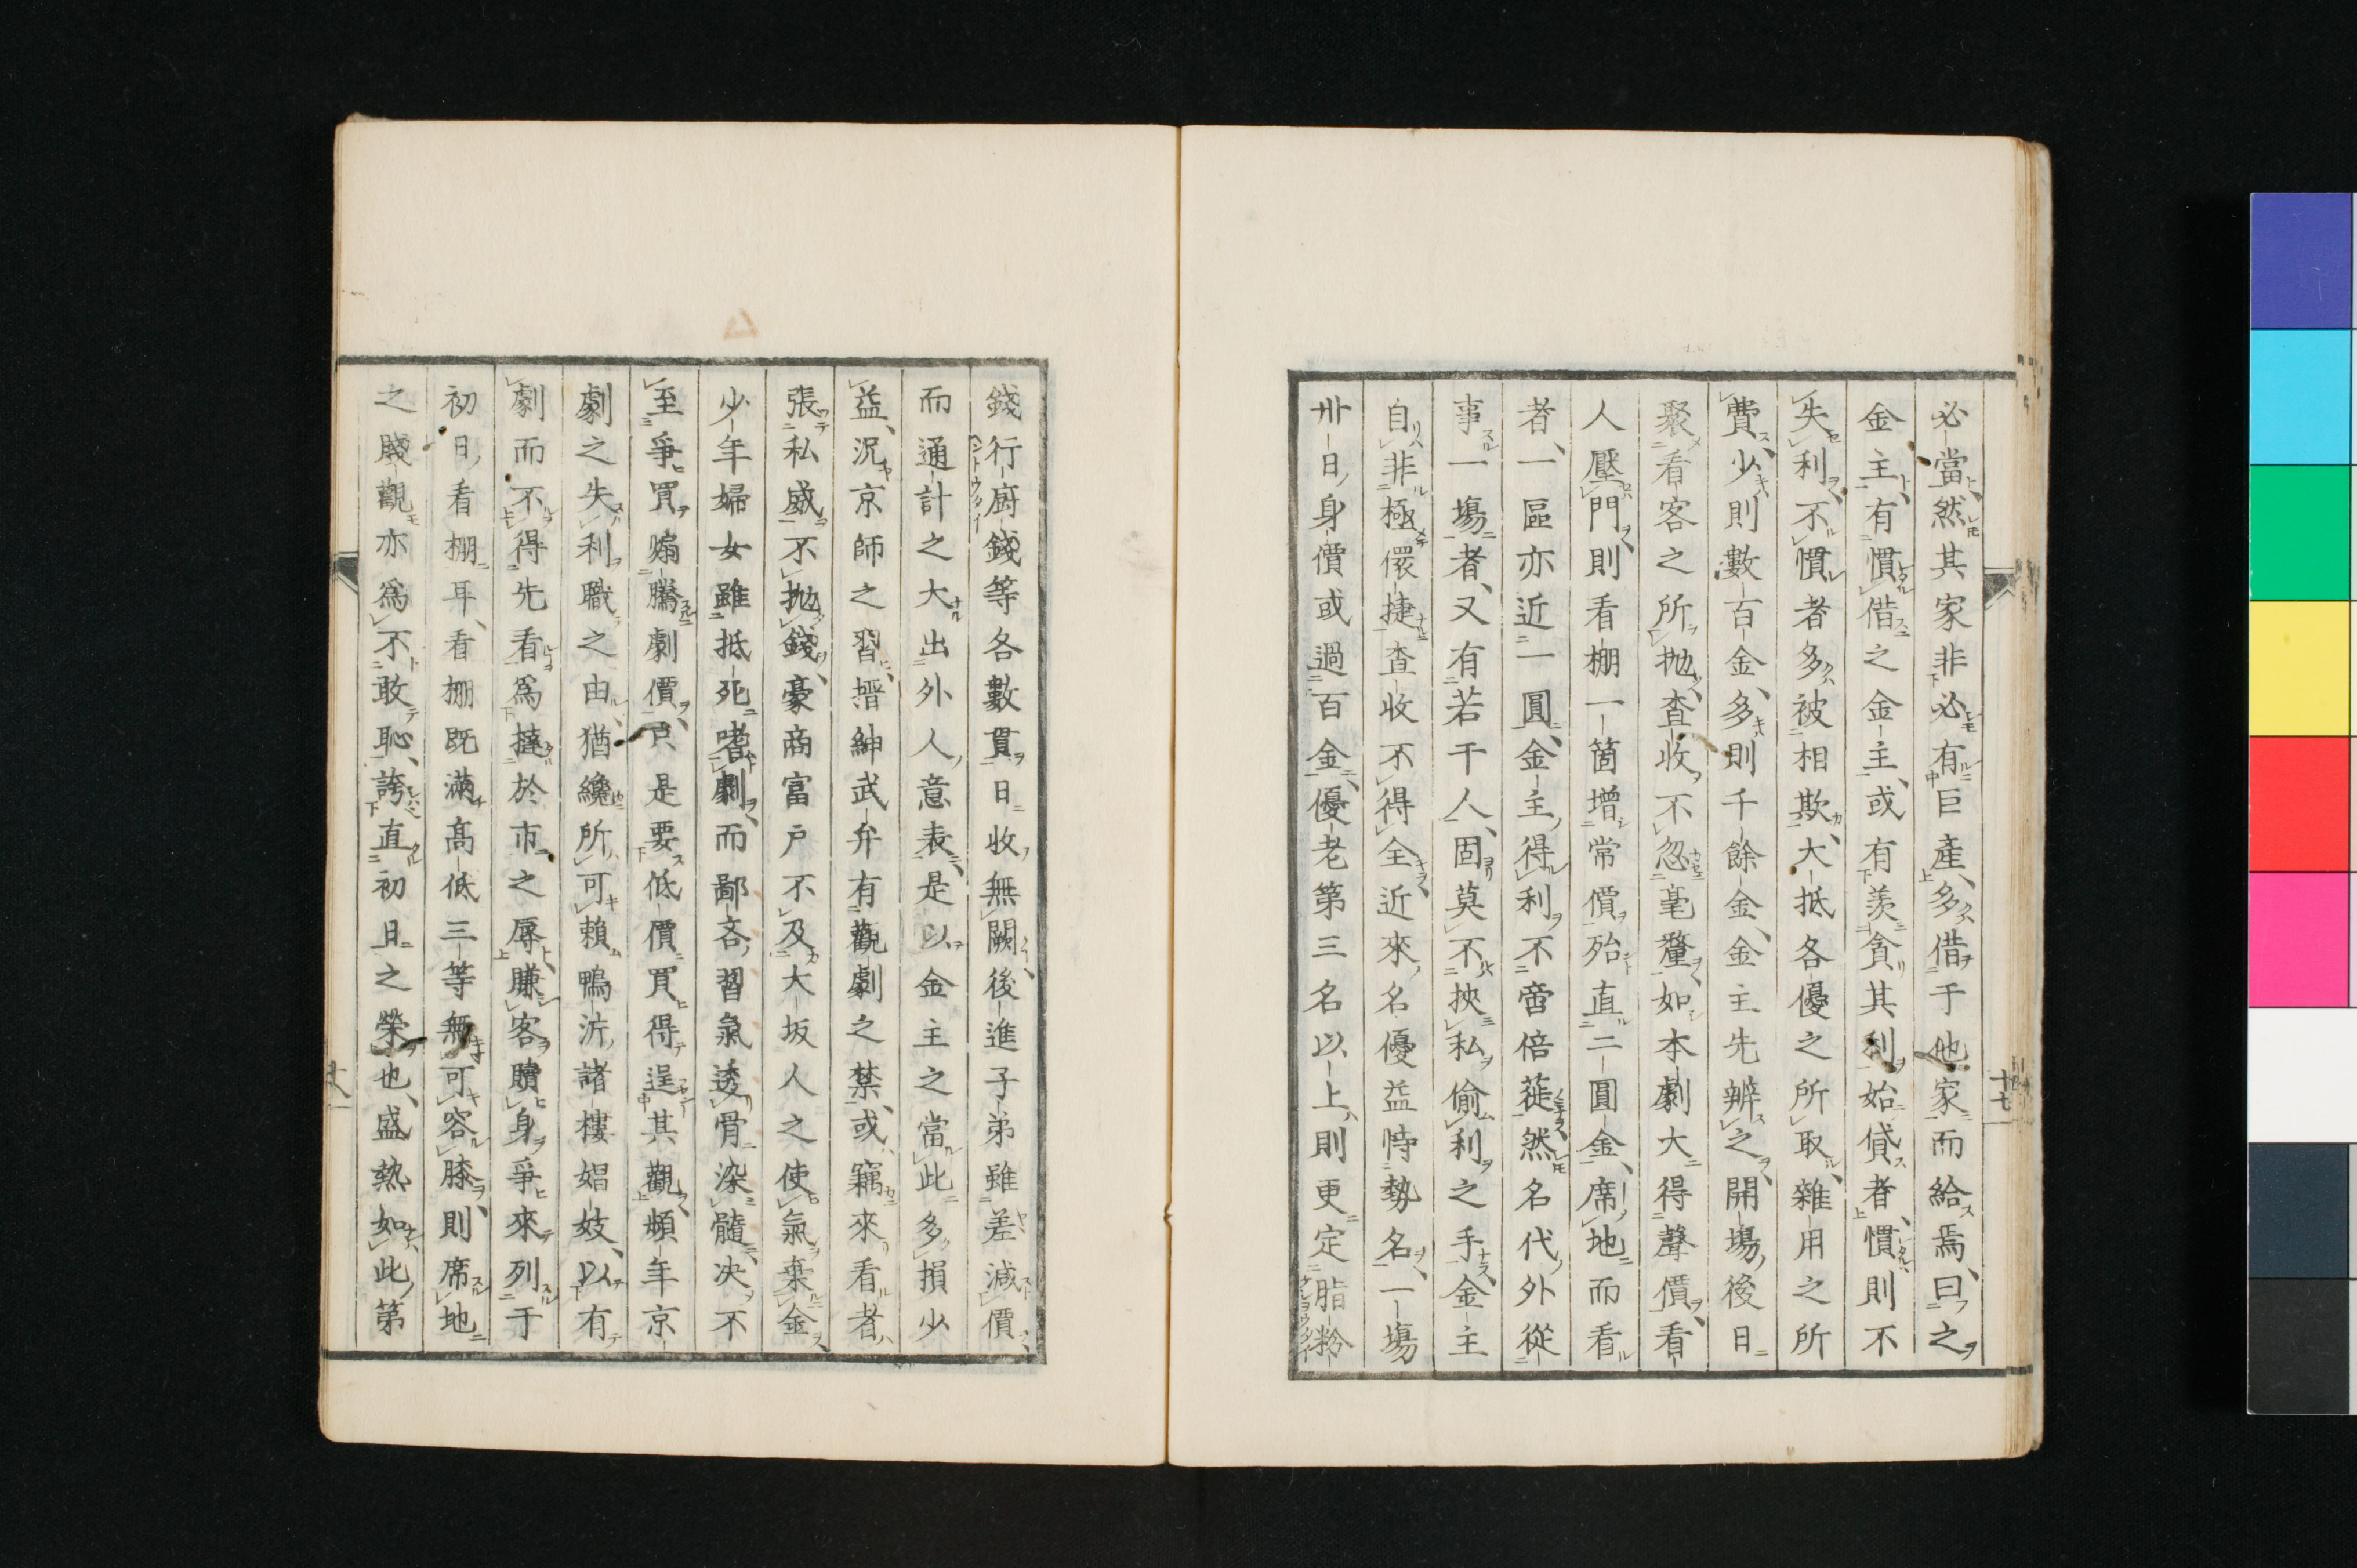 必當然其家非必有巨產多借于他家而給焉曰之
金主有慣借之金主或有羨貪其利始貸者慣則不
失利不慣者多被相欺大抵各優之所取雜用之所
費少則數百金多則千餘金金主先辨之開場後日
聚看客之所抛查收不忽毫釐如本劇大得聲價看
人壓門則看棚一箇增常價殆直二圓金席地而看
者一區亦近一圓金主得利不啻倍蓰然名代外從
事一場者又有若干人固莫不挾私偷利之手金主
自非極儇捷查收不得全近來名優益恃勢名一場
卅日身價或過百金優老第三名以上則更定脂粉
十七
錢行廚錢等各數貫日收無闕後進子弟雖差減價
而通計之大出外人意表是以金主之當此多損少
益況京師之習搢紳武弁有觀劇之禁或竊來看者
張私威不抛錢豪商富戶不及大坂人之使氣棄金
少年婦女雖抵死嗜劇而鄙吝習氣透骨染髓決不
至爭買煽騰劇價只是要低價買得逞其觀頻年京
劇之失利職之由猶纔所可賴鴨沂諸樓娼妓以有
劇而不得先看爲撻於市之辱賺客贖身爭來列于
初日看棚耳看棚既滿高低三等無可容膝則席地
之賤觀亦爲不敢恥誇直初日之榮也盛熱如此第